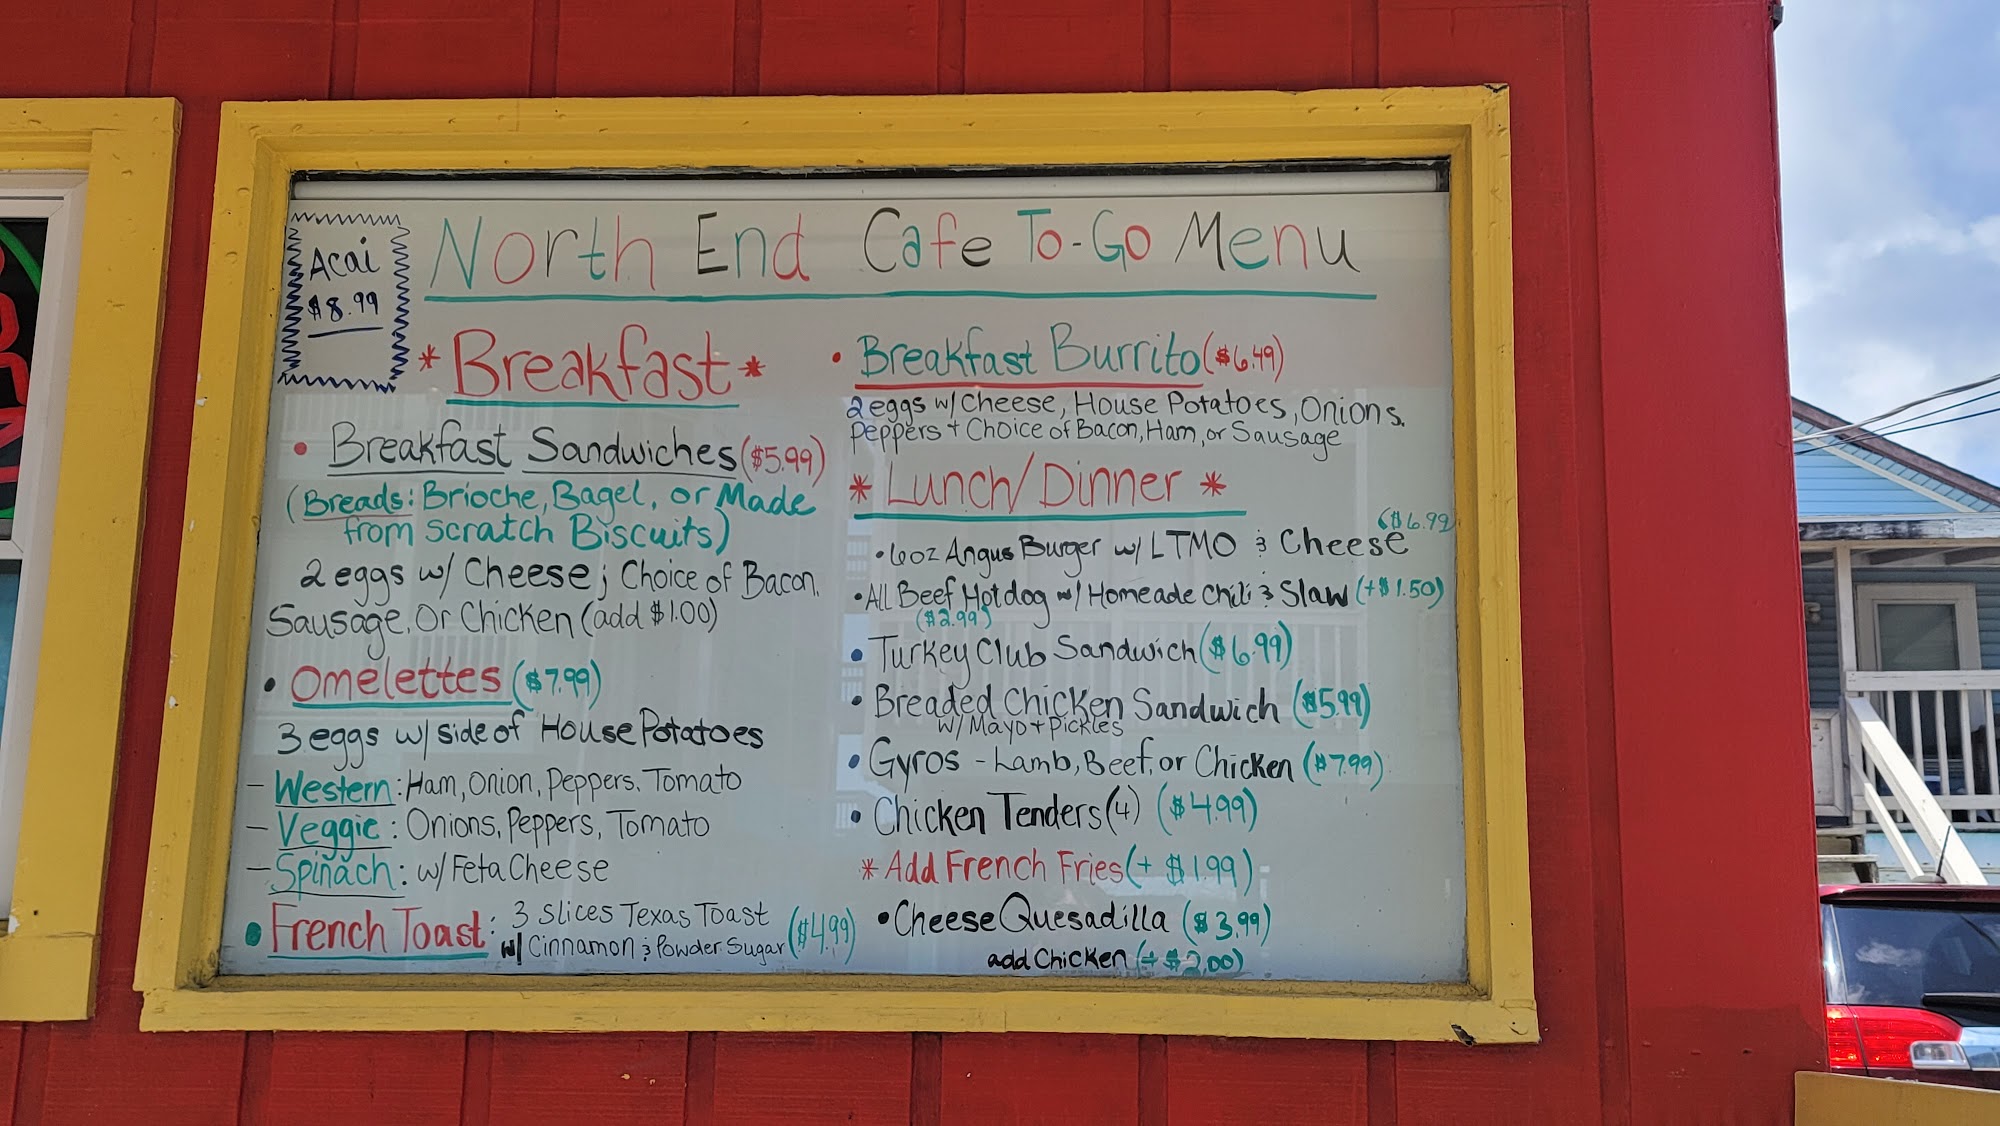 Acai
$8.99
North End Cafe To-Go Menu
* Breakfast *
• Breakfast Sandwiches ($5.99)
(Breads: Brioche, Bagel, or Made
from scratch Biscuits)
2 eggs w/ Cheese; Choice of Bacon,
Sausage, Or Chicken (add $1.00)
• Omelettes ($7.99)
3 eggs w/ side of House Potatoes
- Western: Ham, Onion, Peppers, Tomato
- Veggie: Onions, Peppers, Tomato
- Spinach: w/ Feta Cheese
• French Toast: 3 Slices Texas Toast
w/ Cinnamon & Powder Sugar ($4.99)
• Breakfast Burrito ($6.49)
2 eggs w/ Cheese, House Potatoes, Onions,
Peppers + Choice of Bacon, Ham, or Sausage
* Lunch/Dinner *
• 6oz Angus Burger w/ LTMO & Cheese ($6.99
• All Beef Hotdog w/ Homeade Chili & Slaw (+$1.50)
($2.99)
• Turkey Club Sandwich ($6.99)
• Breaded Chicken Sandwich ($5.99)
w/ Mayo + Pickles
• Gyros - Lamb, Beef, or Chicken ($7.99)
• Chicken Tenders (4) ($4.99)
* Add French Fries (+ $1.99)
• Cheese Quesadilla ($3.99)
add Chicken (+ $2.00)